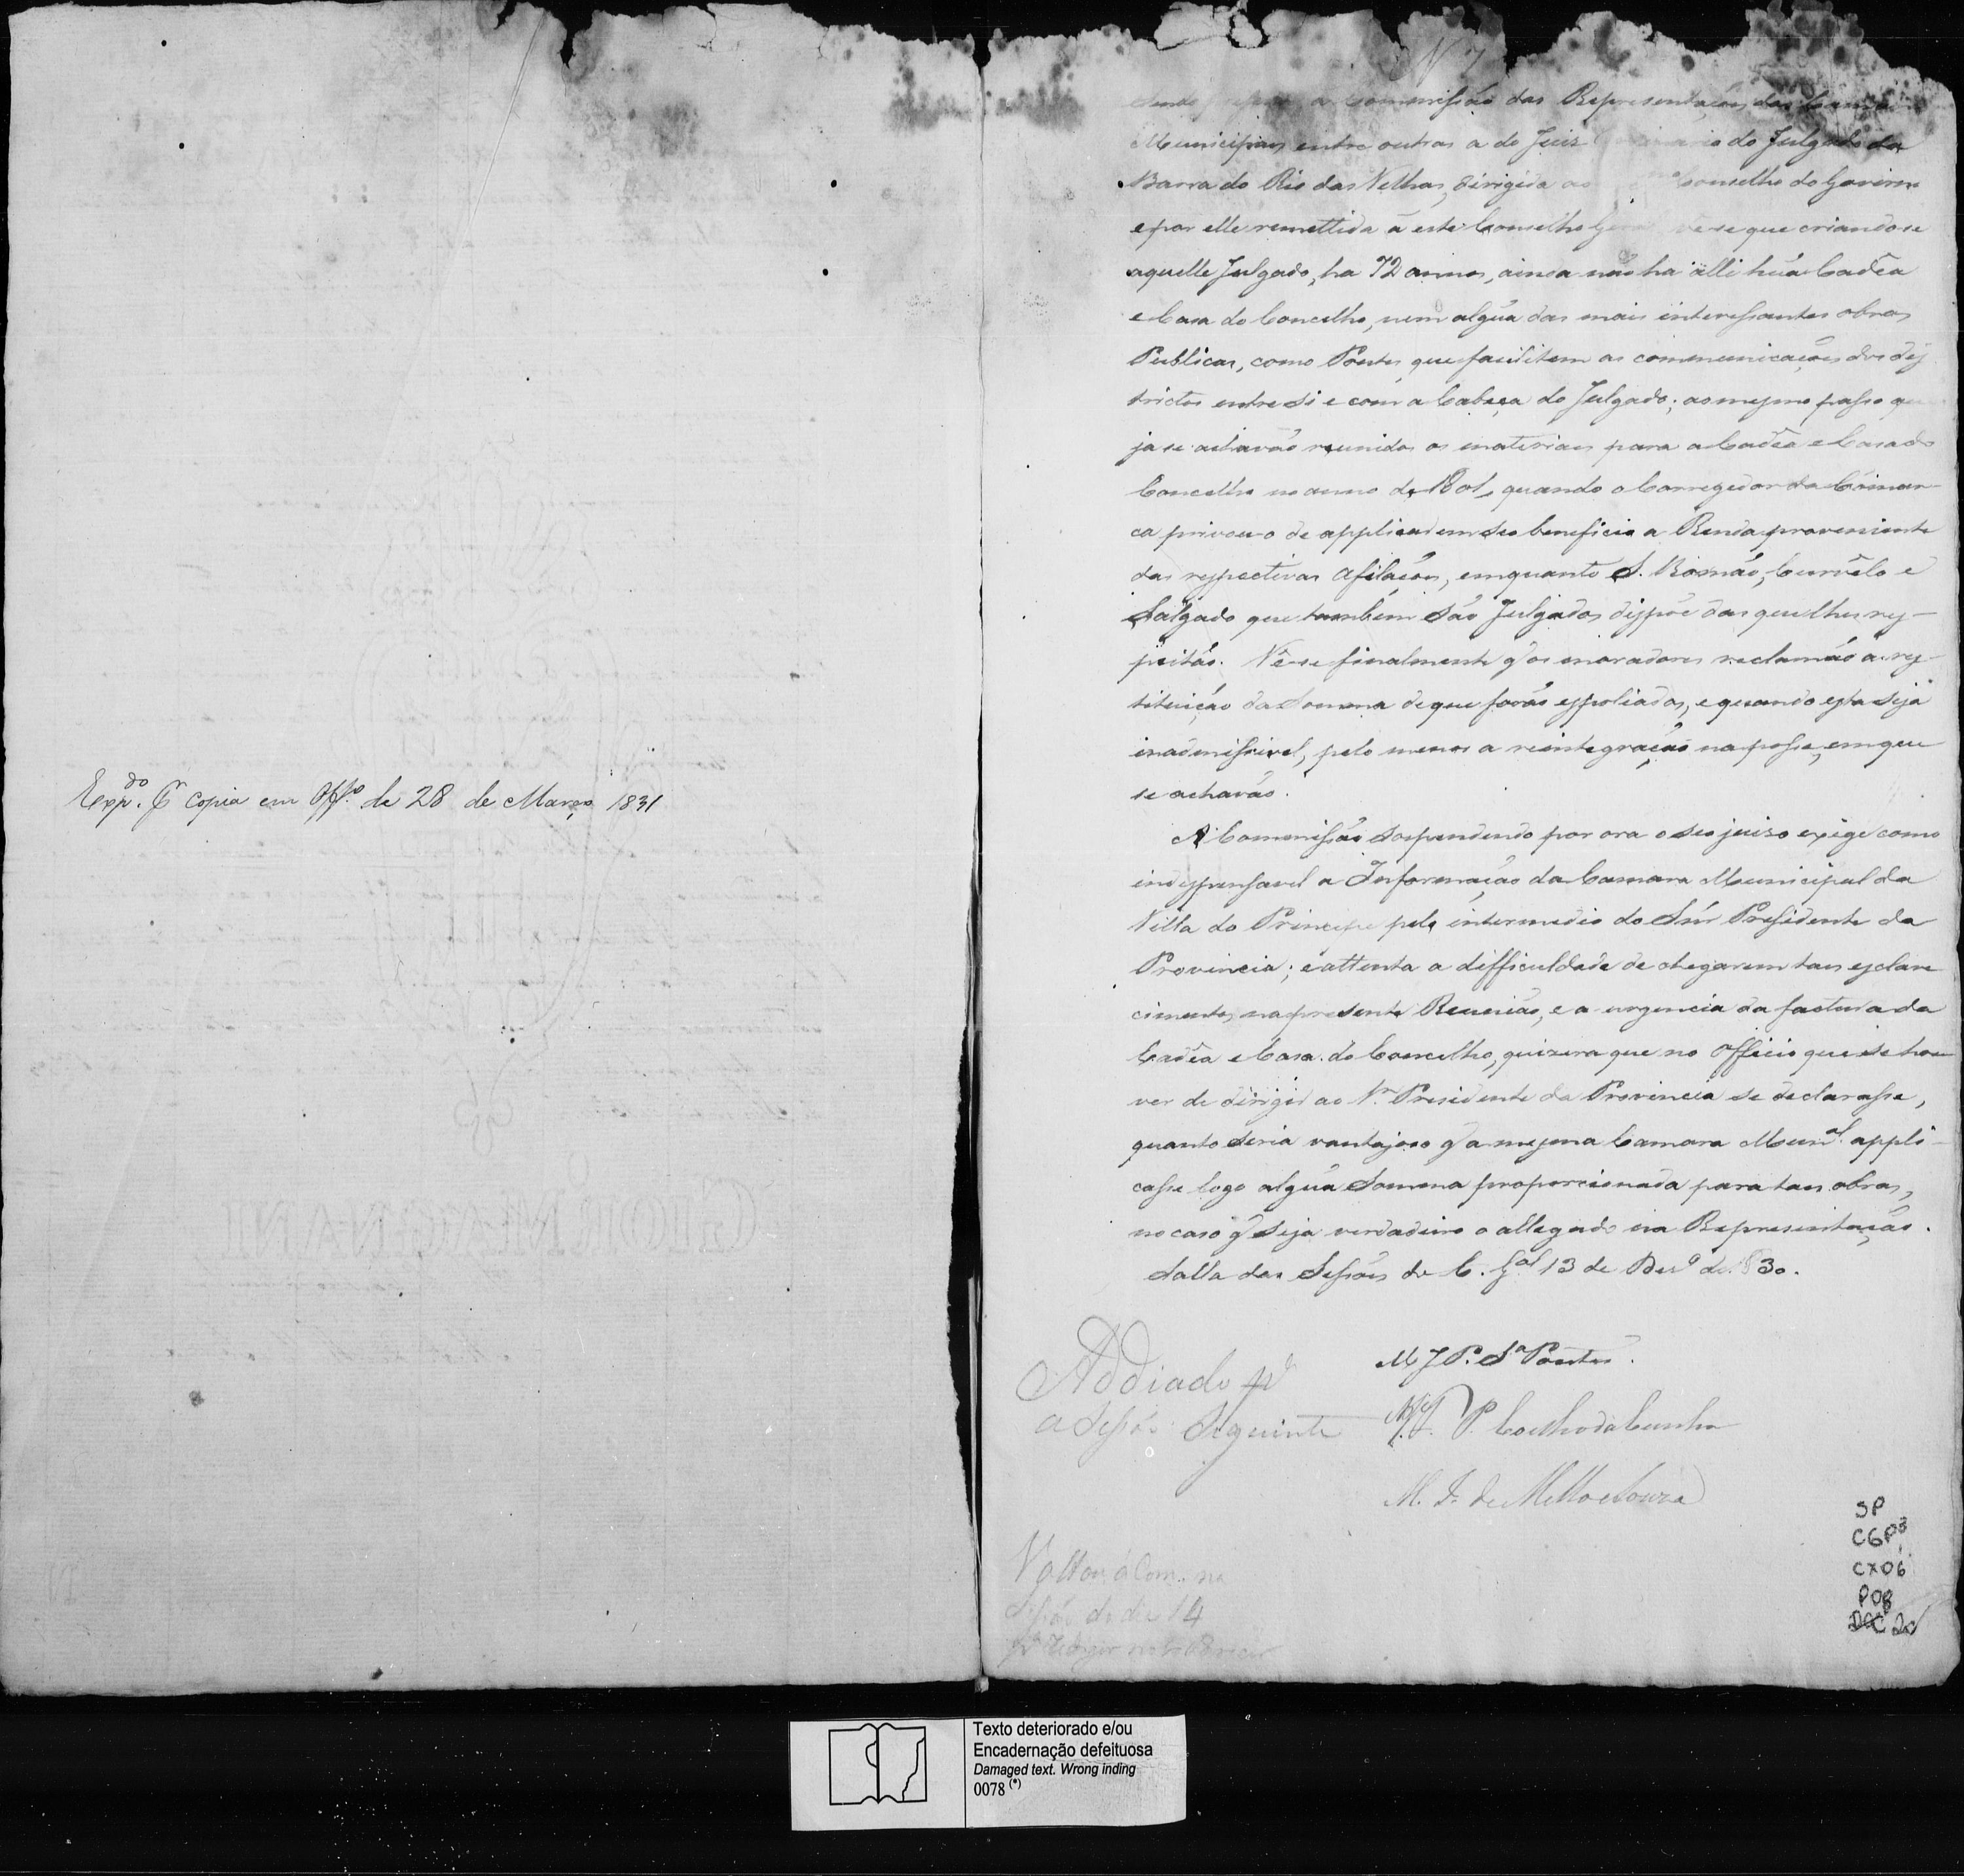 Exp.do P copia em Off.º de 28 de Março 1831
N 7
a Commissão das Representações das Camaras
Municipaes entre outras a do Juiz do Julgado da
Barra do Rio das Velhas, dirigida ao Conselho do Governo
e por elle remettida a este Conselho vê-se que criandose
aquelle Julgado, ha 72 annos, ainda não ha alli hũa Cadêa
e Casa do Concelho, nem algũa das mais interessantes obras
Publicas, como Pontes, que facilitem as communicações dos dis
trictos entre si e com a Cabeça do Julgado; ao mesmo passo que
ja se achavão reunidos os materiaes para a Cadêa e Casa do
Concelho no anno de 1801, quando o Corregedor da Comar
ca privou-o de applicar em seo beneficio a Renda proveniente
das respectivas Afilações, emquanto S. Romão, Curvêlo e
Salgado que tambem são Julgados dispõe das que lhes res-
peitão. Vê-se finalmente q' os moradores reclamão a res-
tituição da Somma de que forão espoliados, e quando esta seja
inadmissivel, pelo menos a reintegração na posse, em que
se achavão.
A Commissão suspendendo por ora o seo juizo exige como
indispensavel a Informação da Camara Municipal da
Villa do Principe pelo intermedio do Snr Presidente da
Provincia; e attenta a difficuldade de chegarem taes esclare
cimentos na presente Reunião, e a urgencia da factura da
Cadêa e Casa do Concelho, quizera que no Officio que se hou
ver de dirigir ao Sr. Presidente da Provincia se declarasse,
quanto seria vantajoso q' a mesma Camara Mun.al appli-
casse logo algũa Somma proporcionada para taes obras,
no caso q' seja verdadeiro o allegado na Representação.
Salla das Sessões do C. G.al 13 de Dez.º de 1830.
M J P. S.ª Pontes.
Addiado p.ª
a Sessão Seguinte
P. Coelho da Cunha
M. I. de Mello e Souza
Voltou á Com. na
Sessão do dia 14
SP
CGP3
CX06
P08
DOC 20
Texto deteriorado e/ou
Encadernação defeituosa
Damaged text. Wrong inding
0078 (*)